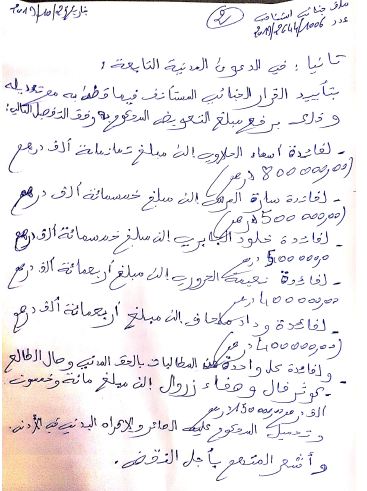 ملف جنائي استئنافي
عدد 2019/2644/1006
(2)
بتاريخ 2019/10/25
ثانيا : في الدعوى المدنية التابعة :
بتأييد القرار الجنائي المستأنف فيما قضى به مع تعديله
وذلك برفع مبلغ التعويض المحكوم به وفق التفصيل التالي:
- لفائدة أسماء الحلاوي إلى مبلغ ثمانمائة ألف درهم
(800 000,00 درهم)
- لفائدة سارة المرس إلى مبلغ خمسمائة ألف درهم
(500 000,00 درهم)
- لفائدة خلود الجابري إلى مبلغ خمسمائة ألف درهم
500 000,00 درهم
- لفائدة نعيمة الحروري إلى مبلغ أربعمائة ألف درهم
400 000,00 درهم
- لفائدة وداد ملحاف إلى مبلغ أربعمائة ألف درهم
(400 000,00 درهم)
- ولفائدة كل واحدة من المطالبات بالحق المدني وصال الطالع
- كوثر فال وصفاء زروال إلى مبلغ مائة وخمسون
ألف درهم 150 000,00 درهم
وتحميل المحكوم عليه الصائر والإجبار البدني في الأدنى.
وأشعر المتهم بأجل النقض.